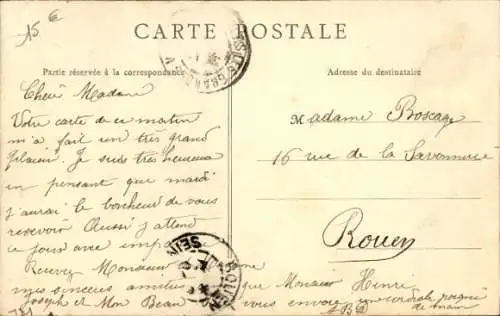 15 €
CARTE POSTALE
Partie réservée à la correspondance
Adresse du destinataire
Chère Madame
Votre carte de ce matin
m'a fait un très grand
plaisir. Je suis très heureux
en pensant que mardi
j'aurai le bonheur de vous
revoir Aussi j'attend
ce jour avec
Recevez Monsieur
mes sincères amitiés que Monsieur Henri
Joseph et Mon Beau vous envoie poignée
de main
Madame Boscage
16 rue de la Savonnerie
Rouen
ROUEN
SEINE